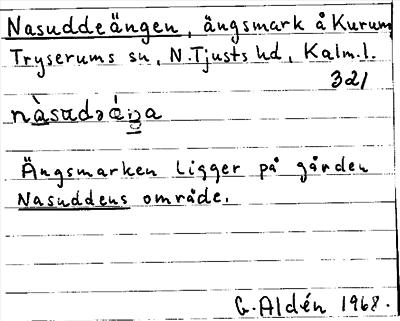 Nasuddeängen, ängsmark å Kurum
Tryserums sn, N. Tjusts hd, Kalm. l.
321
nàsudəáŋa
Ängsmarken ligger på gården
Nasuddens område.
G. Aldén 1968.